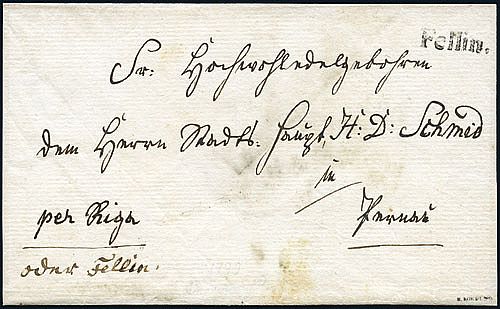 Fellin.
Sr: Hochwohledelgebohren
dem Herrn Stadts. Haupt, H: D: Schmid
in
per Riga
Pernau
oder Fellin.